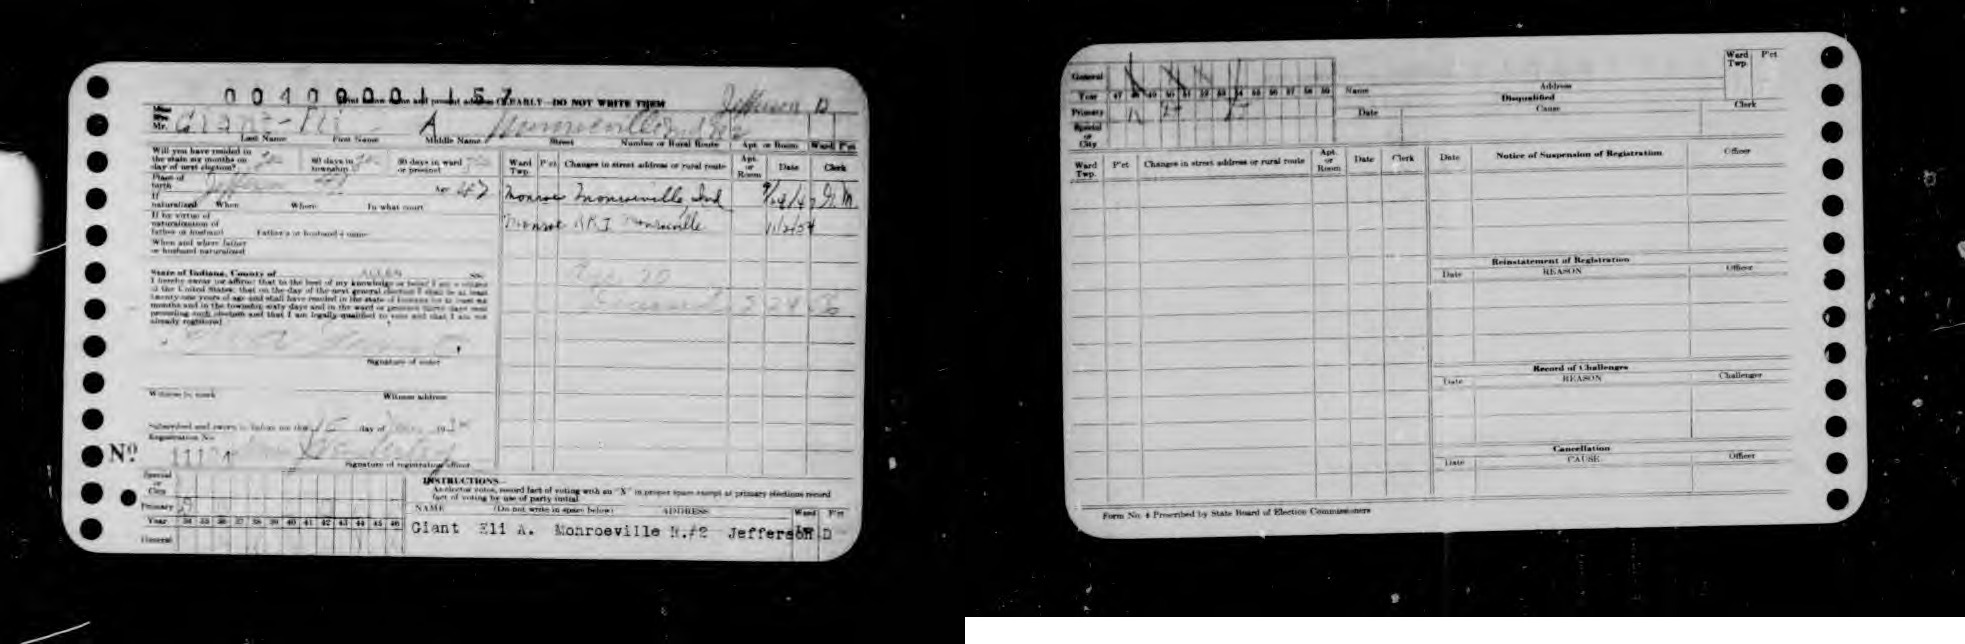 004000001157
Print below name and present address CLEARLY—DO NOT WRITE THEM
Jefferson D
Miss
Mrs.
Mr. Giant - Eli A Monroeville Ind R2
Last Name First Name Middle Name Street Number or Rural Route Apt. or Room Ward P'ct
Will you have resided in
the state six months on
day of next election? Yes 60 days in township Yes 30 days in ward or precinct Yes
Place of
birth Jefferson Age 47
If
naturalized When Where In what court
If by virtue of
naturalization of
father or husband Father's or husband's name
When and where father
or husband naturalized
State of Indiana, County of ALLEN ss:
I hereby swear (or affirm) that to the best of my knowledge or belief I am a citizen
of the United States; that on the day of the next general election I shall be at least
twenty-one years of age and shall have resided in the state of Indiana for at least six
months and in the township sixty days and in the ward or precinct thirty days next
preceding such election and that I am legally qualified to vote and that I am not
already registered
Signature of voter
Witness to mark Witness address
Subscribed and sworn to before me this 15 day of 19
Registration No.
Nº 11174
Signature of registration officer
Ward
Twp. P'ct Changes in street address or rural route Apt.
or
Room Date Clerk
Monroe Monroeville, Ind 9/24/47 M
Monroe RR1 Monroeville 11/2/54
Age 20
5 24
Special
or
City
Primary
Year 34 35 36 37 38 39 40 41 42 43 44 45 46
General
INSTRUCTIONS—
As elector votes, record fact of voting with an "X" in proper space except at primary elections record
fact of voting by use of party initial
NAME (Do not write in space below) ADDRESS Ward P'ct
Giant Eli A. Monroeville R.#2 Jefferson D
General
Year 47 48 49 50 51 52 53 54 55 56 57 58 59
Primary
Special
or
City
Name Address
Disqualified
Date Cause Clerk
Ward
Twp. P'ct
Ward
Twp. P'ct Changes in street address or rural route Apt.
or
Room Date Clerk
Date Notice of Suspension of Registration Officer
Reinstatement of Registration
Date REASON Officer
Record of Challenges
Date REASON Challenger
Cancellation
Date CAUSE Officer
Form No. 4 Prescribed by State Board of Election Commissioners